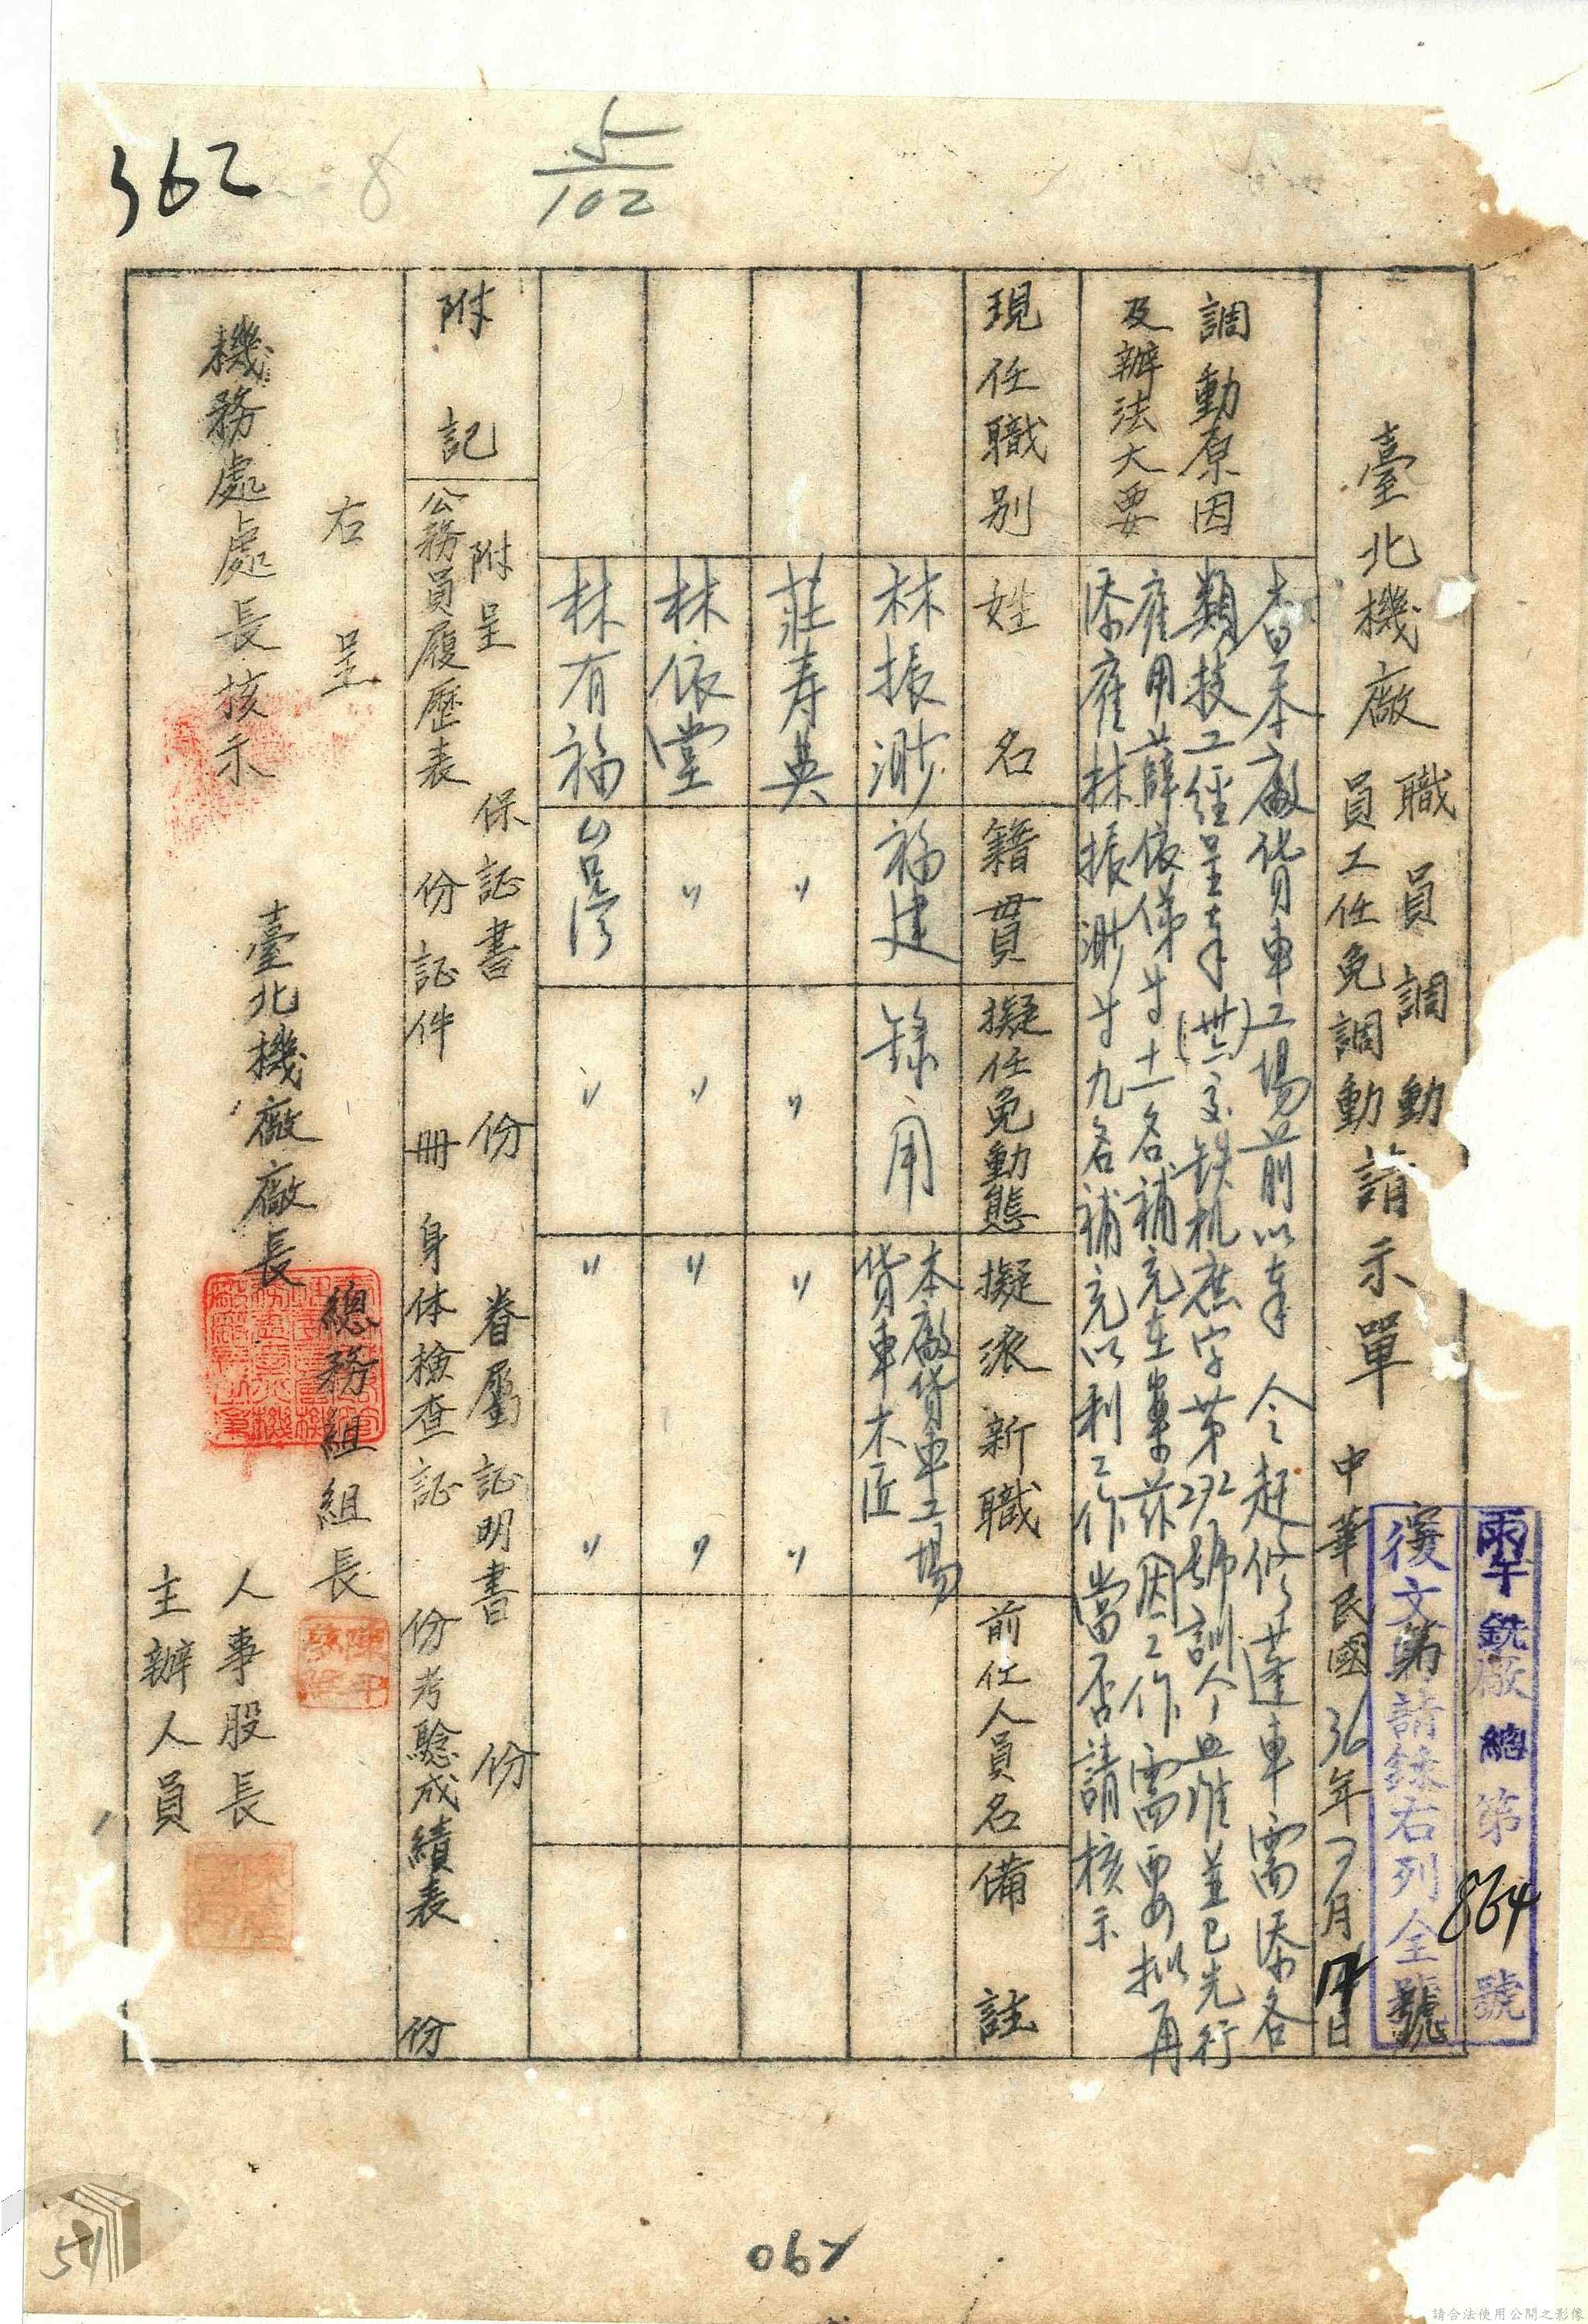 362
8
5/102
臺北機廠
職員調動
員工任免調動
請示單
中華民國36年7月 日
第 號
霽銑廠總第864號
復文請錄右列全號
調動原因
及辦法大要
查本廠貨車工場前以奉 令趕修蓬車需添各
類技工經呈奉(卅六)交鉄机庶字第292號訓令照准並已先行
雇用薛依俤等十一名補充在案茲因工作需要擬再
添雇林振渺等九名補充以利工作當否請核示
現任職別
姓名
籍貫
擬任免動態
擬派新職
前任人員名
備註
林振渺
福建
錄用
本廠貨車工場
貨車木匠
莊寿英
〃
〃
〃
〃
林依堂
〃
〃
〃
〃
林有福
台灣
〃
〃
〃
附記
附呈 保証書 份 眷屬証明書 份
公務員履歷表 份証件 冊 身体檢查証 份考驗成績表 份
右呈
機務處處長核示
臺北機廠廠長
總務組組長
人事股長
主辦人員
51
067
請合法使用公開之影像